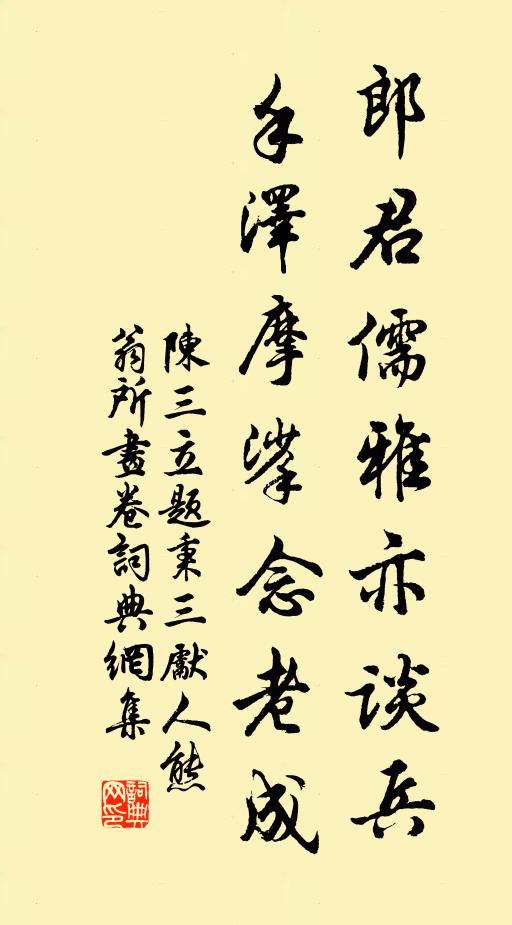 郎君儒雅亦谈兵
手澤摩挲念老成
陳三立题秉三獻人熊
翁所畫卷詞典網集
詞典网印